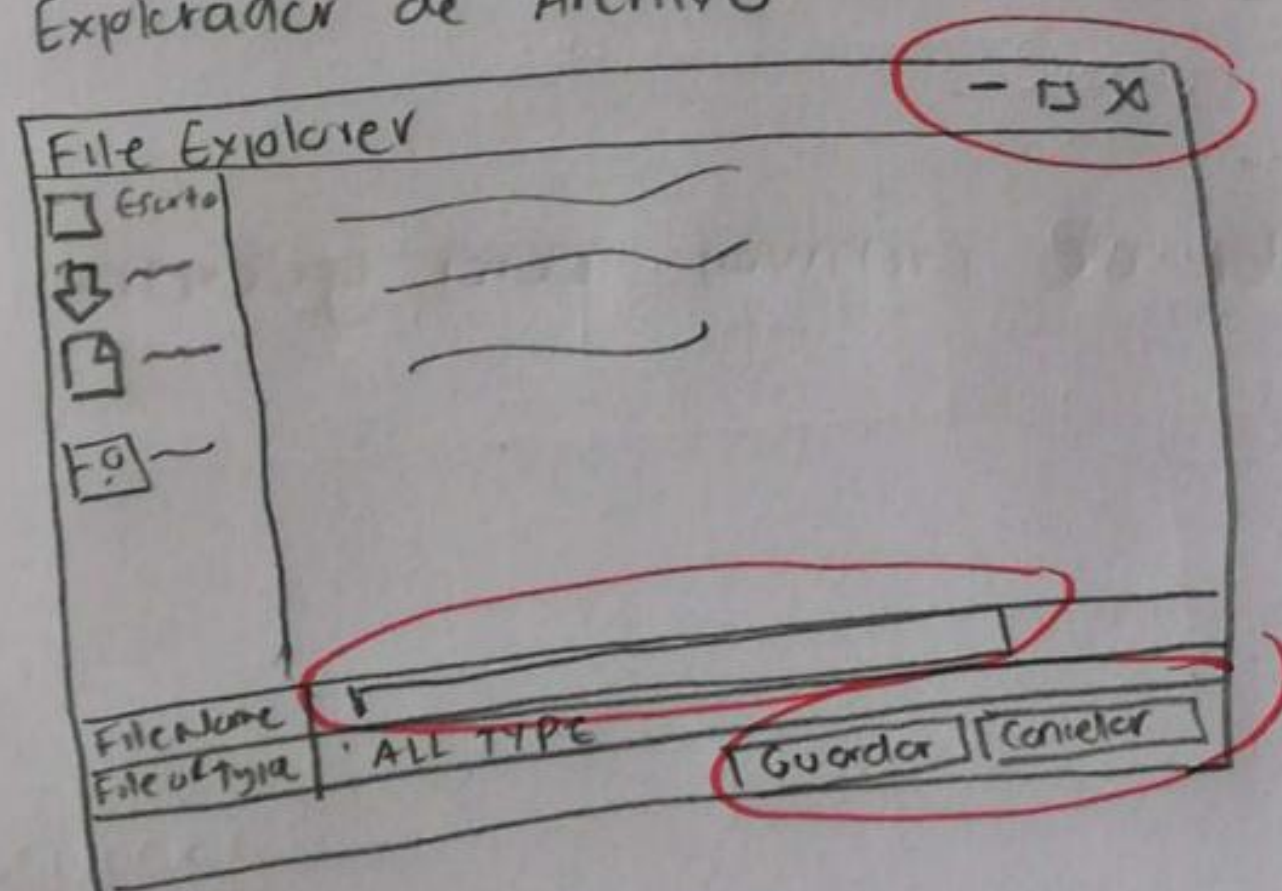 Explorador de Archivo
File Explorer
Escrito
FileName
File of Type
ALL TYPE
Guardar
Cancelar